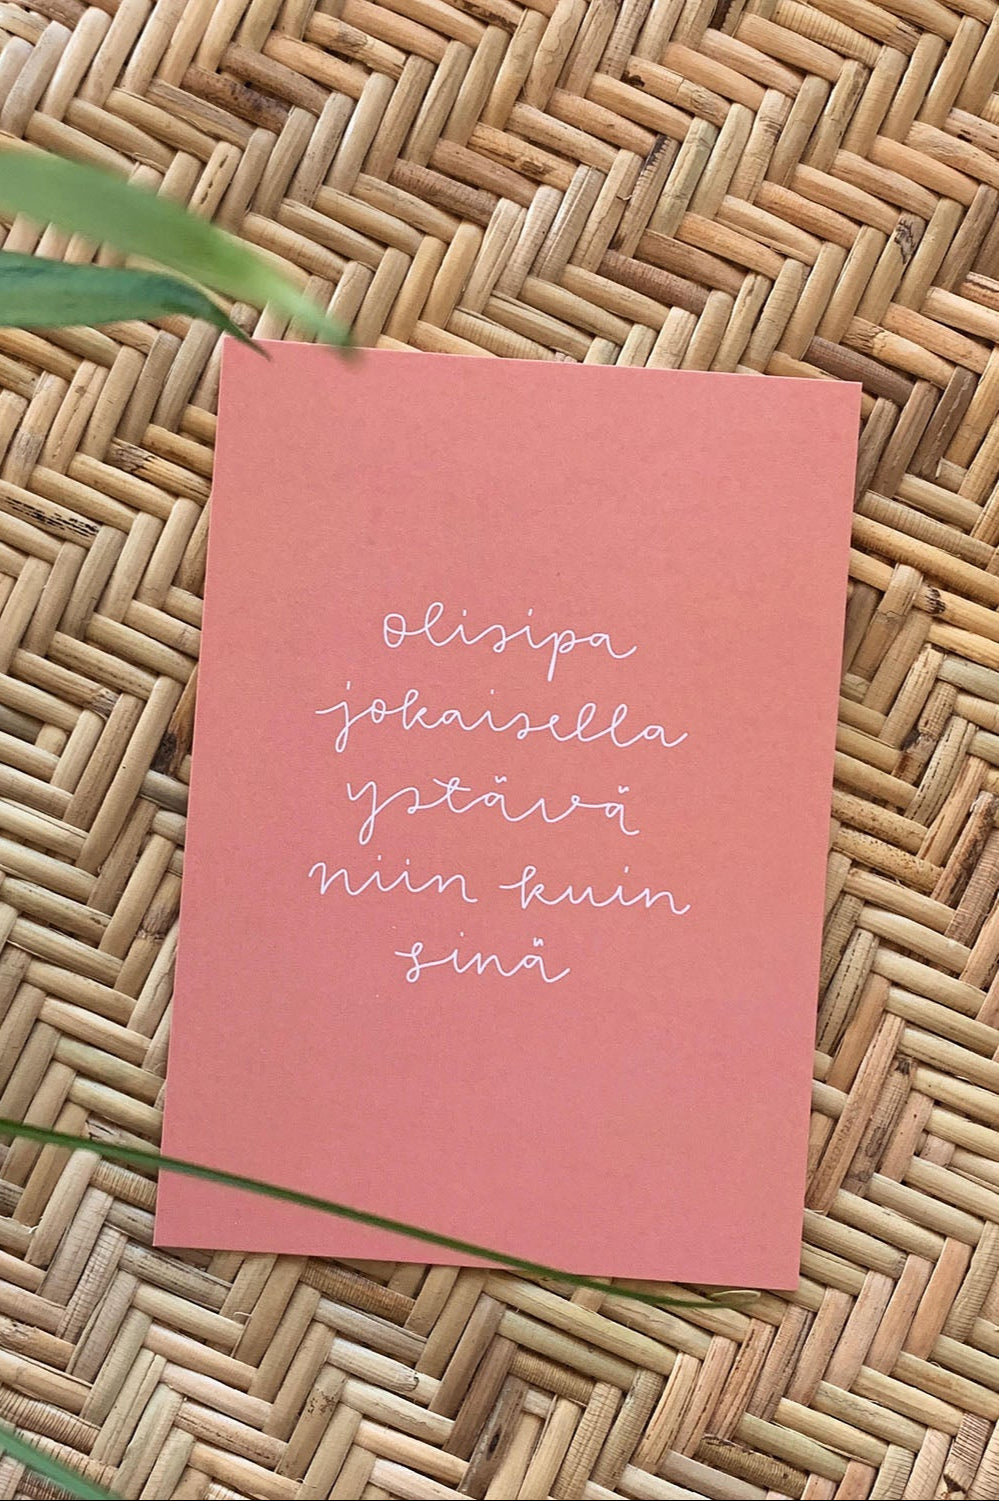 olisipa
jokaisella
ystävä
niin kuin
sinä